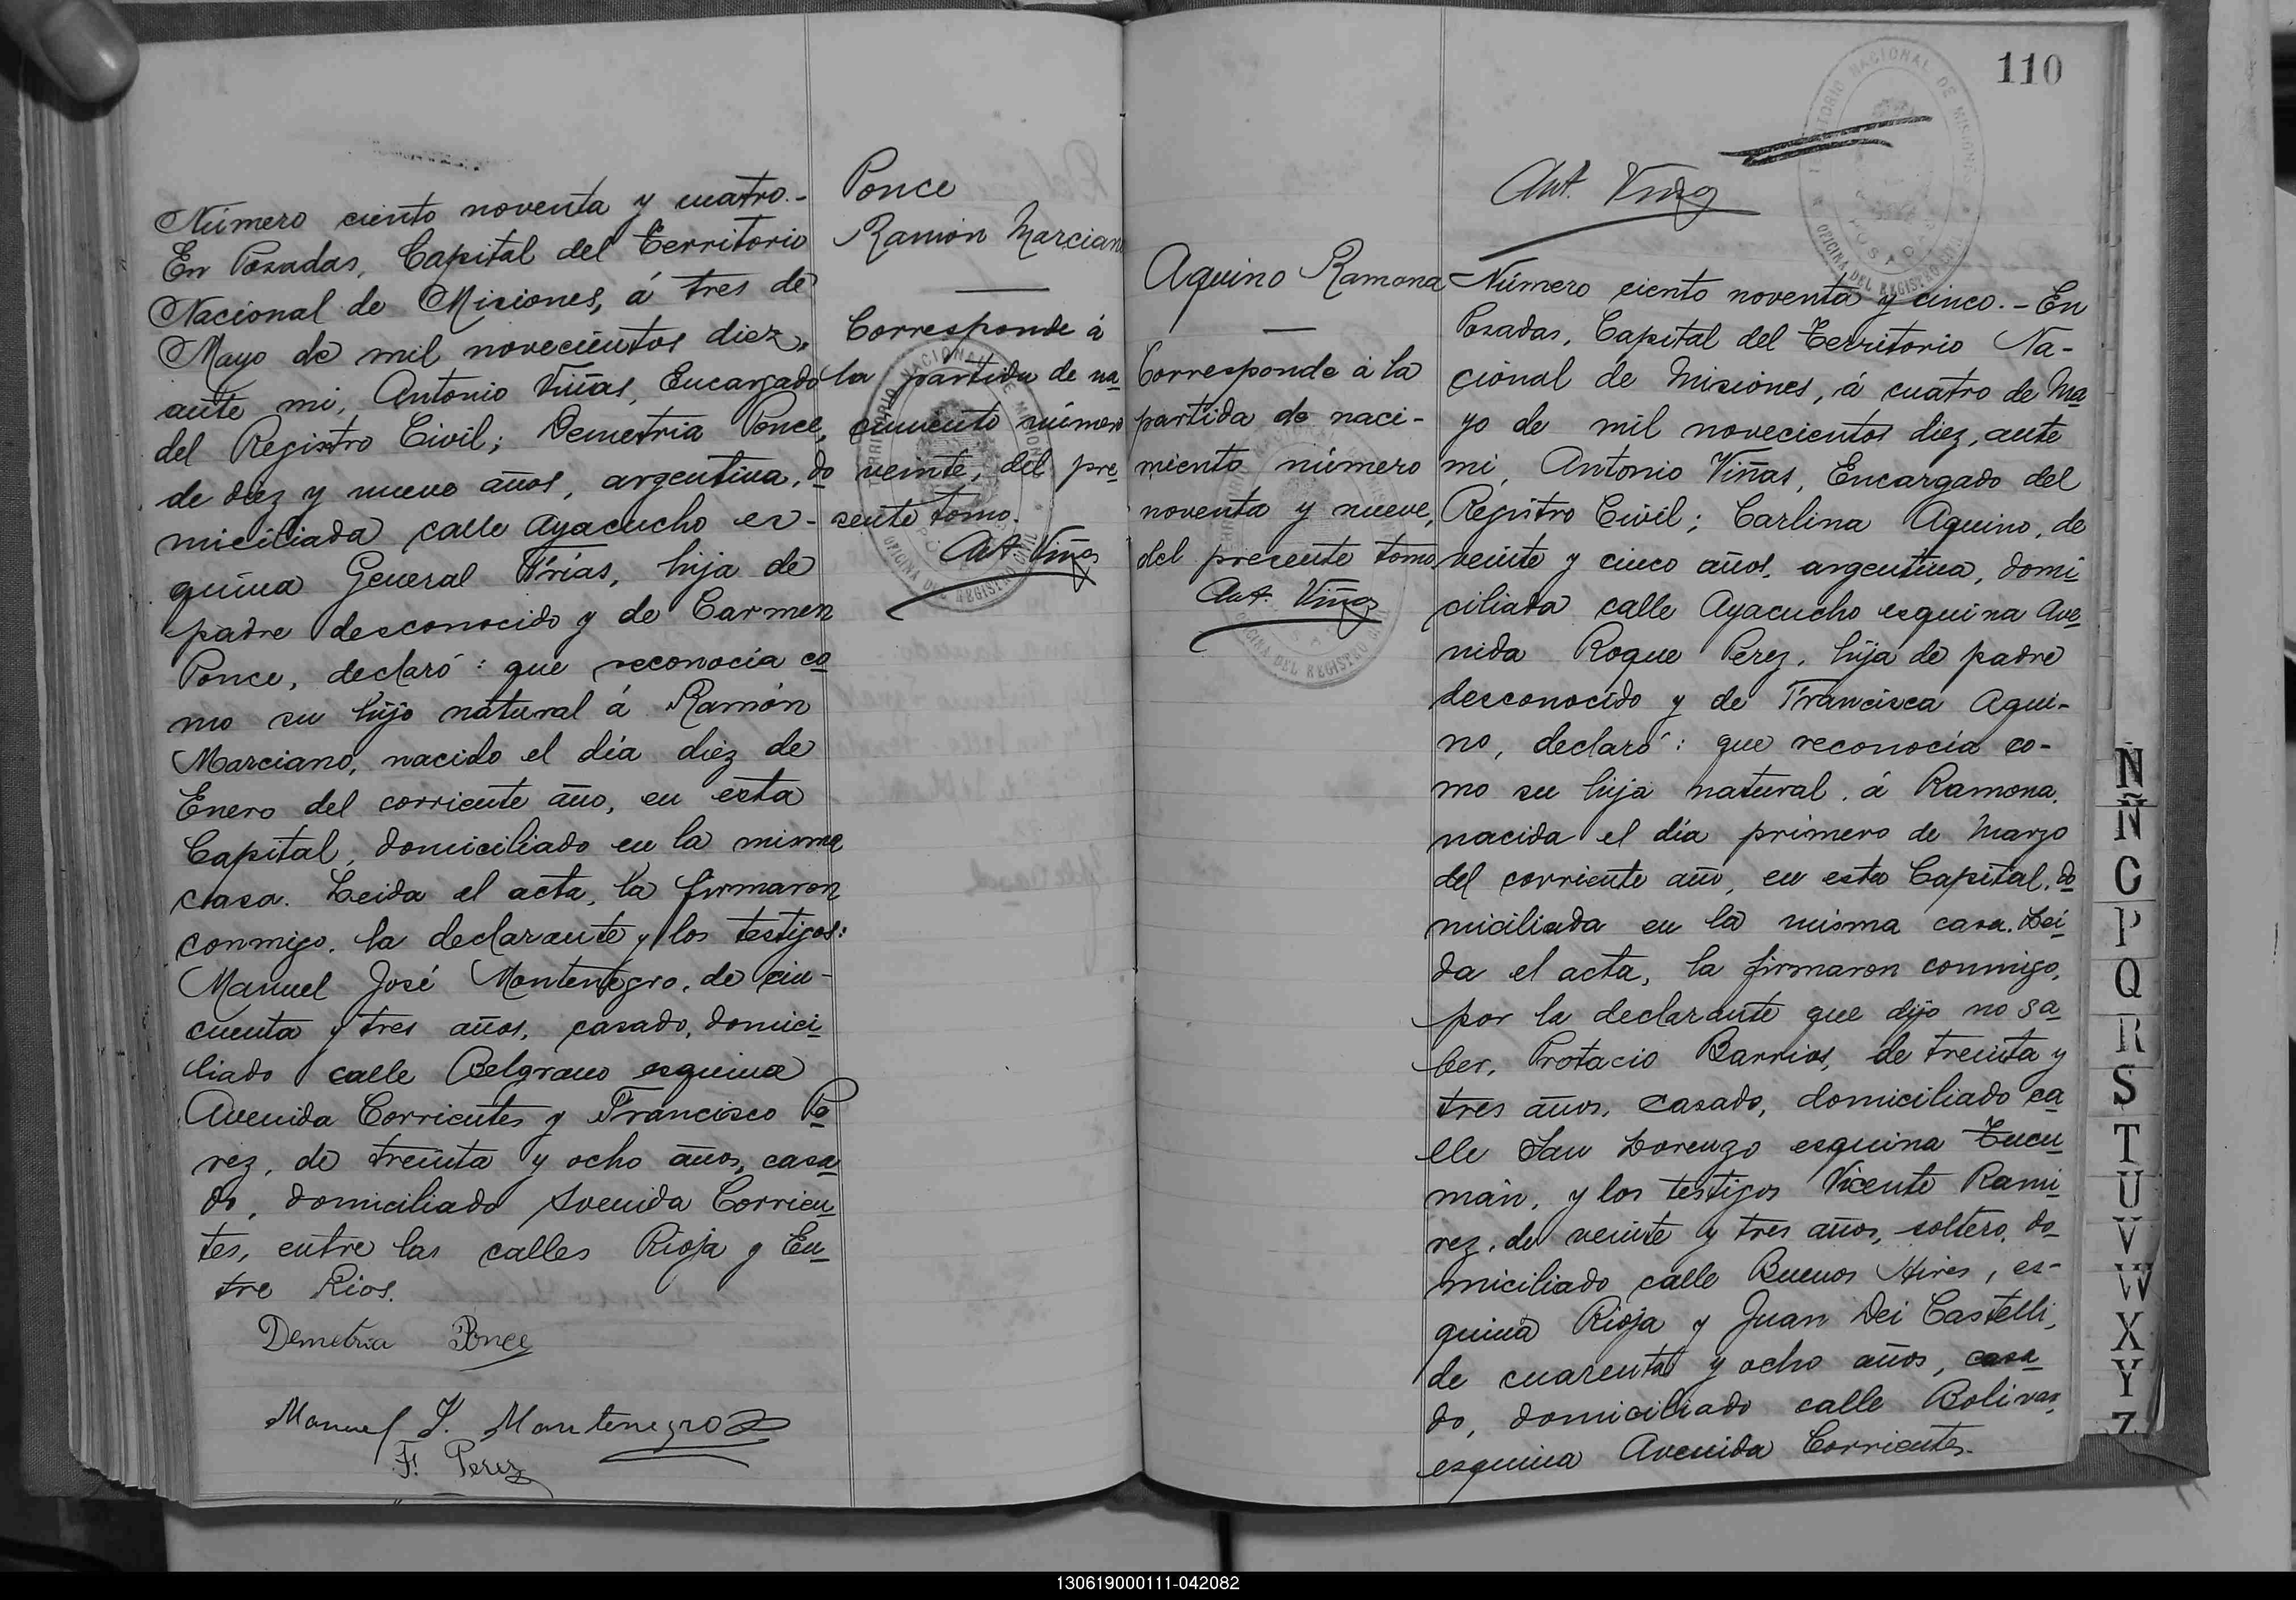 Número ciento noventa y cuatro.-
En Posadas, Capital del Territorio
Nacional de Misiones, á tres de
Mayo de mil novecientos diez,
ante mi, Antonio Viñas, Encargado
del Registro Civil; Demetria Ponce,
de diez y nueve años, argentina, do
miciliada calle Ayacucho es-
quina General Frías, hija de
padre desconocido y de Carmen
Ponce, declaró: que reconocía co
mo su hijo natural á Ramón
Marciano, nacido el día diez de
Enero del corriente año, en esta
Capital, domiciliado en la misma
casa. Leida el acta, la firmaron
conmigo, la declarante y los testigos:
Manuel José Montenegro, de cin-
cuenta y tres años, casado, domici
liado calle Belgrano esquina
Avenida Corrientes y Francisco Pe
rez, de treinta y ocho años, casa
do, domiciliado Avenida Corrien
tes, entre las calles Rioja y En
tre Rios.
Demetria Ponce
Manuel J. Montenegro
F. Perez
Ponce
Ramón Marciano
Corresponde á
la partida de na
cimiento número
veinte, del pre
sente tomo.
Ant. Viñas
TERRITORIO NACIONAL DE MISIONES
OFICINA DEL REGISTRO CIVIL
110
TERRITORIO NACIONAL DE MISIONES
POSADAS
OFICINA DEL REGISTRO CIVIL
Ant. Viñas
Aquino Ramona
Corresponde á la
partida de naci-
miento número
noventa y nueve,
del presente tomo.
Ant. Viñas
OFICINA DEL REGISTRO CIVIL
Número ciento noventa y cinco.- En
Posadas, Capital del Territorio Na-
cional de Misiones, á cuatro de Ma
yo de mil novecientos diez, ante
mi, Antonio Viñas, Encargado del
Registro Civil; Carlina Aquino, de
veinte y cinco años, argentina, domi
ciliada calle Ayacucho esquina Ave
nida Roque Perez, hija de padre
desconocido y de Francisca Aqui-
no, declaró: que reconocía co-
mo su hija natural, á Ramona,
nacida el día primero de Marzo
del corriente año, en esta Capital, do
miciliada en la misma casa. Lei
da el acta, la firmaron conmigo,
por la declarante que dijo no sa
ber, Protacio Barrios, de treinta y
tres años, casado, domiciliado ca
lle San Lorenzo esquina Tucu
mán, y los testigos Vicente Rami
rez, de veinte y tres años, soltero, do
miciliado calle Buenos Aires, es-
quina Rioja y Juan Dei Castelli,
de cuarenta y ocho años, casa
do, domiciliado calle Bolivar,
esquina Avenida Corrientes.
N
Ñ
O
P
Q
R
S
T
U
V
W
X
Y
Z
130619000111-042082